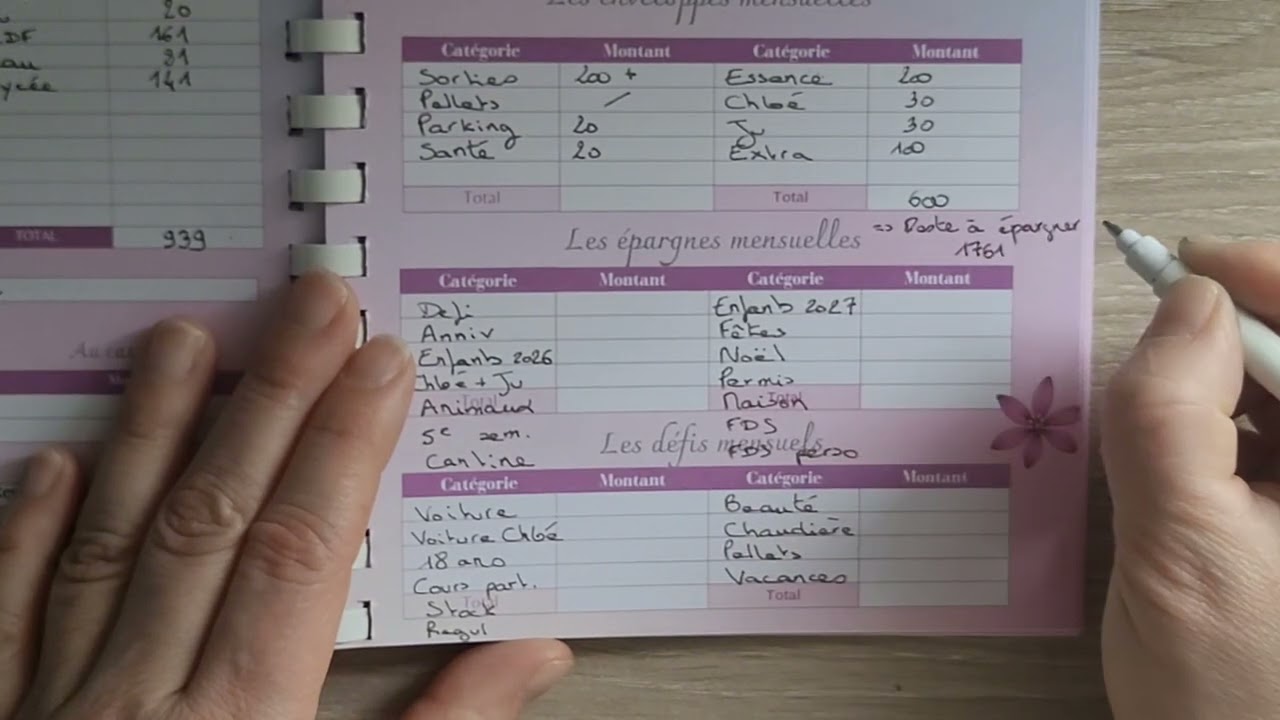 20
161
81
141
TOTAL 939
Les enveloppes mensuelles
Catégorie Montant Catégorie Montant
Sorties 200 + Essence 200
Pellets / Chloé 30
Parking 20 Ju 30
Santé 20 Extra 100
Total Total 600
=> Reste à épargner
1761
Les épargnes mensuelles
Catégorie Montant Catégorie Montant
Défi Enfants 2027
Anniv Fêtes
Enfants 2026 Noël
Chloé + Ju Permis
Total Total
Animaux Maison
5e sem. FDS
Cantine FDS perso
Les défis mensuels
Catégorie Montant Catégorie Montant
Voiture Beauté
Voiture Chloé Chaudière
18 ans Pellets
Cours part. Vacances
Total Total
Stock
Regul